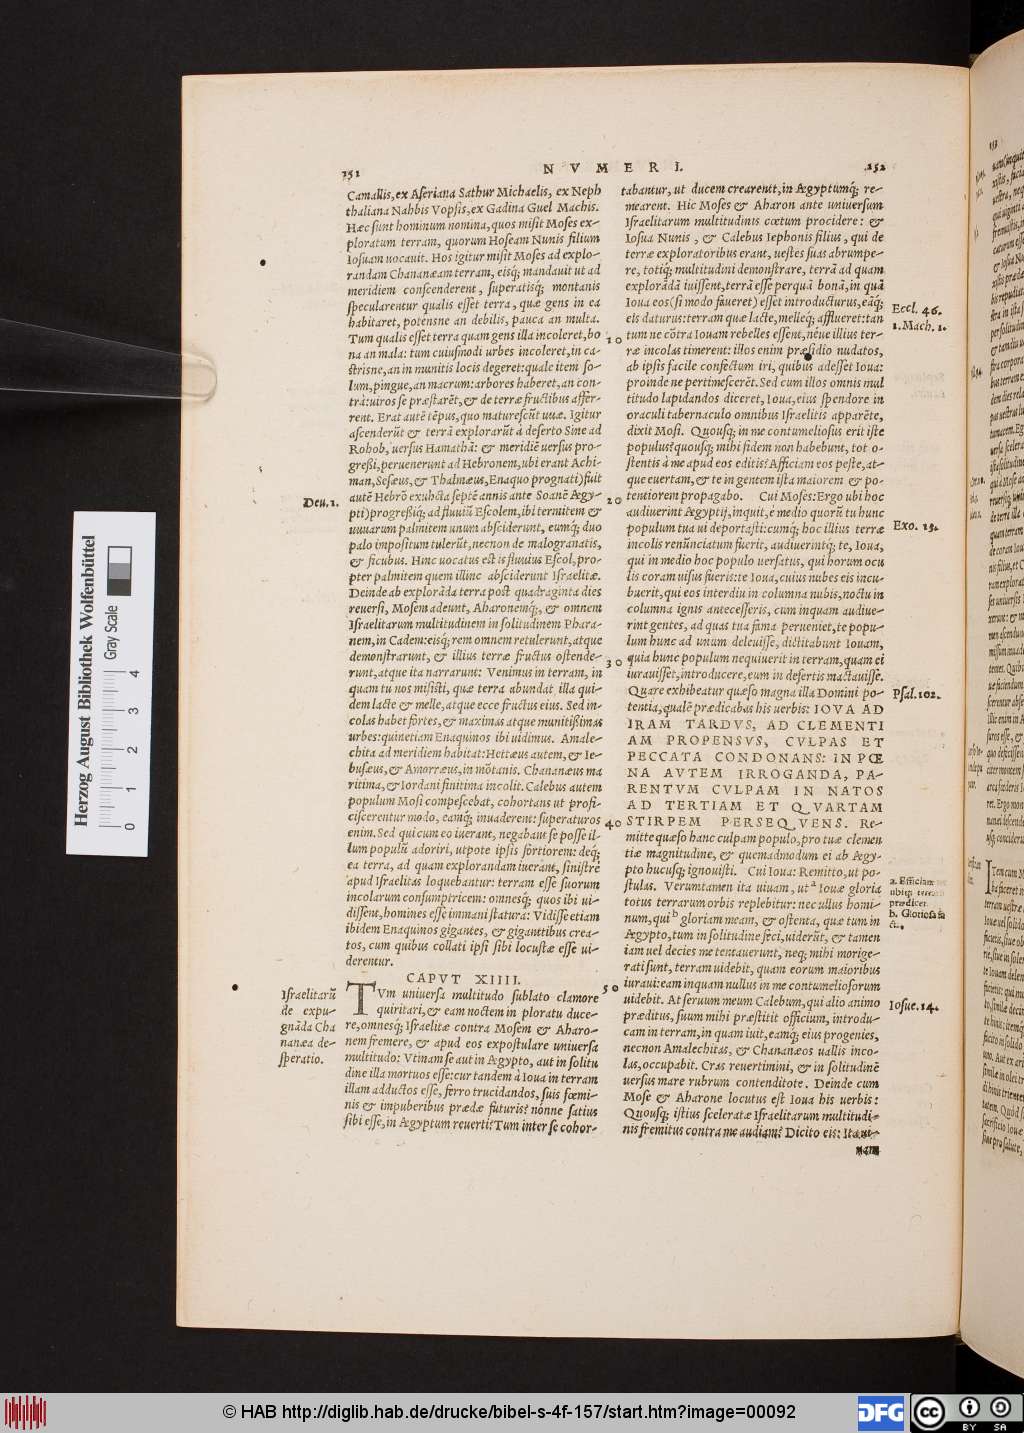 251
NVMERI.
252
Camallis, ex Aseriana Sathur Michaelis, ex Neph
thaliana Nahbis Vopsis, ex Gadina Guel Machis.
Hæc sunt hominum nomina, quos misit Moses ex-
ploratum terram, quorum Hoseam Nunis filium
Iosuam uocauit. Hos igitur misit Moses ad explo-
randam Chananæam terram, eisq; mandauit ut ad
meridiem conscenderent, superatisq; montanis
specularentur qualis esset terra, quæ gens in ea
habitaret, potensne an debilis, pauca an multa.
Tum qualis esset terra quam gens illa incoleret, bo
na an mala: tum cuiusmodi urbes incoleret, in ca-
strisne, an in munitis locis degeret: quale item so-
lum, pingue, an macrum: arbores haberet, an con-
trà: uiros se præstarēt, & de terræ fructibus affer-
rent. Erat autē tēpus, quo maturescūt uuæ. Igitur
ascenderūt & terrā explorarūt à deserto Sine ad
Rohob, uersus Hamathā: & meridiē uersus pro-
greßi, peruenerunt ad Hebronem, ubi erant Achi-
man, Sesæus, & Thalmæus, Enaquo prognati) fuit
autē Hebrō exuhcta septē annis ante Soanē Ægy-
pti) progreßiq; ad fluuiū Escolem, ibi termitem &
uuuarum palmitem unum absciderunt, eumq; duo
palo impositum tulerūt, necnon de malogranatis,
& ficubus. Hinc uocatus est is fluuius Escol, pro-
pter palmitem quem illinc absciderunt Israelitæ.
Deinde ab explorāda terra post quadraginta dies
reuersi, Mosem adeunt, Aharonemq;, & omnem
Israelitarum multitudinem in solitudinem Phara-
nem, in Cadem: eisq; rem omnem retulerunt, atque
demonstrarunt, & illius terræ fructus ostende-
runt, atque ita narrarunt: Venimus in terram, in
quam tu nos misisti, quæ terra abundat illa qui-
dem lacte & melle, atque ecce fructus eius. Sed in-
colas habet fortes, & maximas atque munitißimas
urbes: quinetiam Enaquinos ibi uidimus. Amale-
chita ad meridiem habitat: Hettæus autem, & Ie-
busæus, & Amorræus, in mōtanis. Chananæus ma
ritima, & Iordani finitima incolit. Calebus autem
populum Mosi compescebat, cohortans ut profi-
ciscerentur modo, eamq; inuaderent: superaturos
enim. Sed qui cum eo iuerant, negabant se posse il-
lum populū adoriri, utpote ipsis fortiorem: deq;
ea terra, ad quam explorandam iuerant, sinistrè
apud Israelitas loquebantur: terram esse suorum
incolarum consumptricem: omnesq; quos ibi ui-
dissent, homines esse immani statura: Vidisse etiam
ibidem Enaquinos gigantes, & giganttibus crea-
tos, cum quibus collati ipsi sibi locustæ esse ui-
derentur.
CAPVT XIIII.
TVm uniuersa multitudo sublato clamore
quiritari, & eam noctem in ploratu duce-
re, omnesq; Israelitæ contra Mosem & Aharo-
nem fremere, & apud eos expostulare uniuersa
multitudo: Vtinam se aut in Ægypto, aut in solitu
dine illa mortuos esse: cur tandem à Ioua in terram
illam adductos esse, ferro trucidandos, suis fœmi-
nis & impuberibus prædæ futuris? nónne satius
sibi esse, in Ægyptum reuerti? Tum inter se cohor-
Deu. 1.
Israelitarū
de expu-
gnāda Cha
nanæa de-
speratio.
10
20
30
40
50
tabantur, ut ducem crearent, in Ægyptumq; re-
mearent. Hic Moses & Aharon ante uniuersum
Israelitarum multitudinis cœtum procidere: &
Iosua Nunis, & Calebus Iephonis filius, qui de
terræ exploratoribus erant, uestes suas abrumpe-
re, totiq; multitudini demonstrare, terrā ad quam
explorādā iuissent, terrā esse perquā bonā, in quā
Ioua eos (si modo faueret) esset introducturus, eāq;
eis daturus: terram quæ lacte, melleq; afflueret: tan
tum ne cōtra Iouam rebelles essent, néue illius ter-
ræ incolas timerent: illos enim præsidio nudatos,
ab ipsis facile confectum iri, quibus adesset Ioua:
proinde ne pertimescerēt. Sed cum illos omnis mul
titudo lapidandos diceret, Ioua, eius splendore in
oraculi tabernaculo omnibus Israelitis apparēte,
dixit Mosi. Quousq; in me contumeliosus erit iste
populus? quousq; mihi fidem non habebunt, tot o-
stentis à me apud eos editis? Afficiam eos peste, at-
que euertam, & te in gentem ista maiorem & po-
tentiorem propagabo. Cui Moses: Ergo ubi hoc
audiuerint Ægyptij, inquit, è medio quorū tu hunc
populum tua ui deportasti: cumq; hoc illius terræ
incolis renūnciatum fuerit, audiuerintq; te, Ioua,
qui in medio hoc populo uersatus, qui horum ocu
lis coram uisus fueris: te Ioua, cuius nubes eis incu-
buerit, qui eos interdiu in columna nubis, noctu in
columna ignis antecesseris, cum inquam audiue-
rint gentes, ad quas tua fama perueniet, te popu-
lum hunc ad unum deleuisse, dictitabunt Iouam,
quia hunc populum nequiuerit in terram, quam ei
iurauisset, introducere, eum in desertis mactauisse.
Quare exhibeatur quæso magna illa Domini po-
tentia, qualē prædicabas his uerbis: IOVA AD
IRAM TARDVS, AD CLEMENTI
AM PROPENSVS, CVLPAS ET
PECCATA CONDONANS: IN PŒ
NA AVTEM IRROGANDA, PA-
RENTVM CVLPAM IN NATOS
AD TERTIAM ET QVARTAM
STIRPEM PERSEQVENS. Re-
mitte quæso hanc culpam populo, pro tuæ clemen
tiæ magnitudine, & quemadmodum ei ab Ægy-
pto hucusq; ignouisti. Cui Ioua: Remitto, ut po-
stulas. Veruntamen ita uiuam, ut a Iouæ gloria
totus terrarum orbis replebitur: nec ullus homi-
num, qui b gloriam meam, & ostenta, quæ tum in
Ægypto, tum in solitudine feci, uiderūt, & tamen
iam uel decies me tentauerunt, neq; mihi morige-
rati sunt, terram uidebit, quam eorum maioribus
iuraui: eam inquam nullus in me contumeliosorum
uidebit. At seruum meum Calebum, qui alio animo
præditus, suum mihi præstitit officium, introdu-
cam in terram, in quam iuit, eamq; eius progenies,
necnon Amalechitas, & Chananæos uallis inco-
las, occupabit. Cras reuertimini, & in solitudinē
uersus mare rubrum contenditote. Deinde cum
Mose & Aharone locutus est Ioua his uerbis:
Quousq; istius sceleratæ Israelitarum multitudi-
nis fremitus contra me audiam? Dicito eis: Ita ui-
Eccl. 46.
1. Mach. 1.
Exo. 13.
Psal. 102.
a. Efficiam
ubiq; terrarū
prædicer.
b. Gloriosa fa
cta.
Iosue. 14.
Herzog August Bibliothek Wolfenbüttel
Gray Scale
0 1 2 3 4
© HAB http://diglib.hab.de/drucke/bibel-s-4f-157/start.htm?image=00092
DFG
cc
BY SA